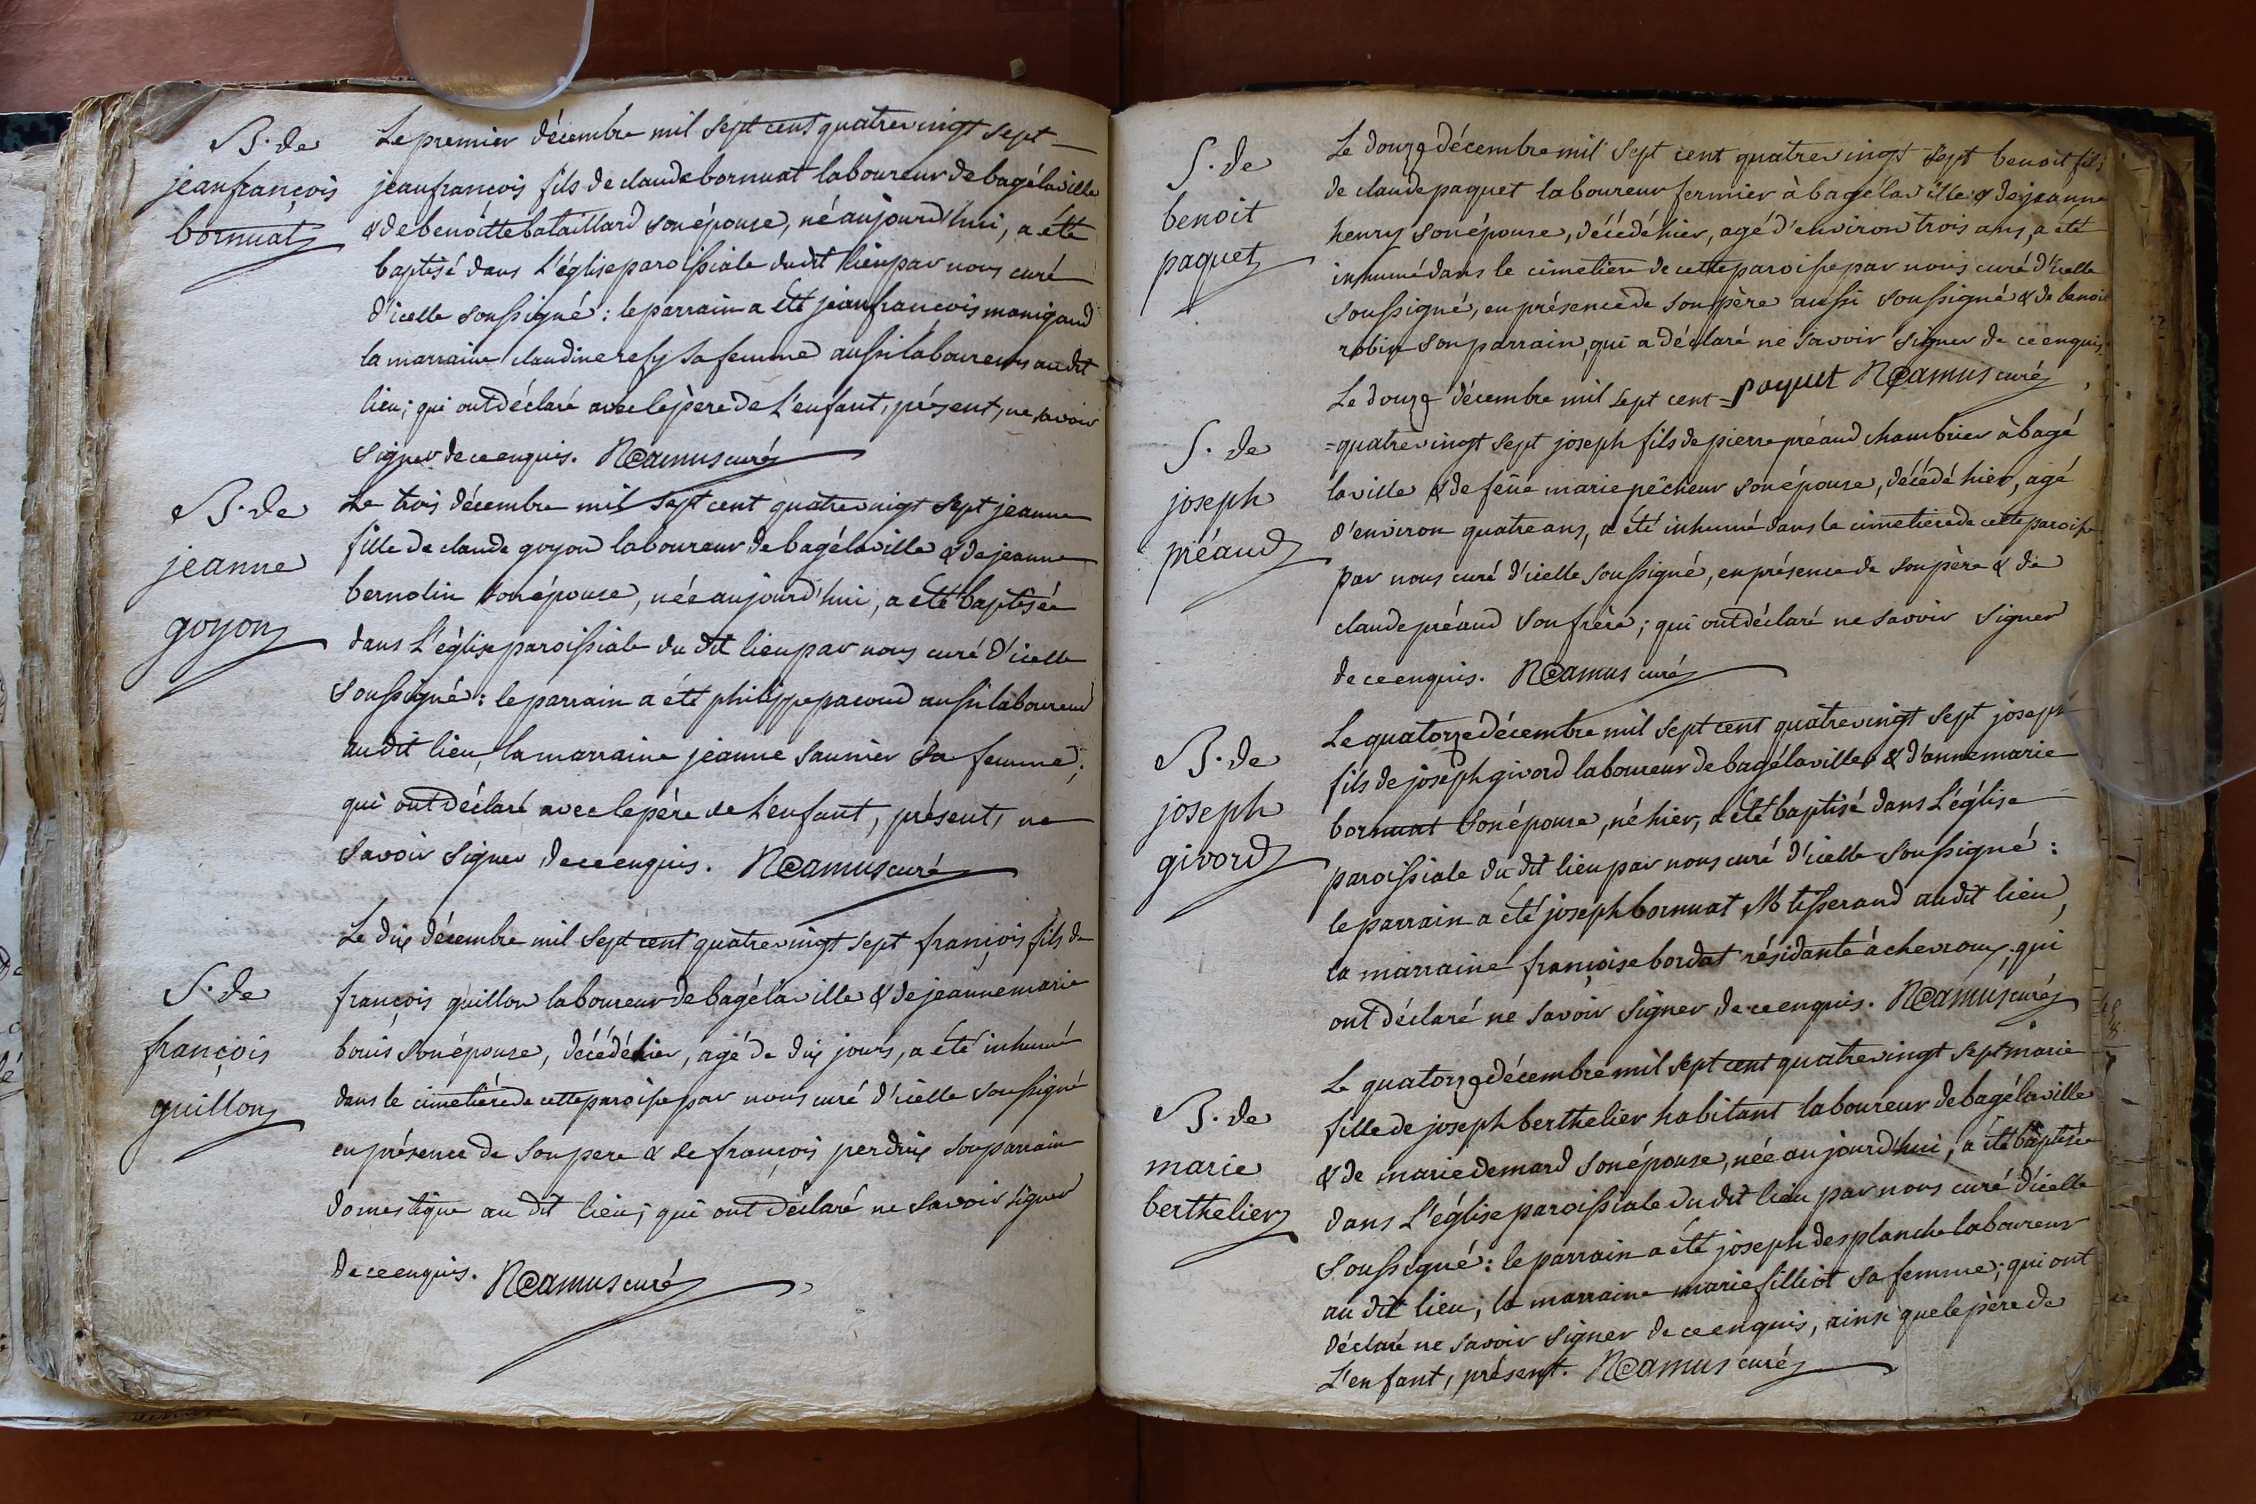 B. de
jeanfrançois
bornuat
Le premier décembre mil sept cent quatre vingt sept
jeanfrançois fils de claude bornuat laboureur de bagélaville
& de benoitte bataillard son épouse, né aujourd'hui, a été
baptisé dans L'église paroissiale du dit lieu par nous curé
d'icelle soussigné : le parrain a été jeanfrançois manigaud
la marraine claudine resy sa femme aussi laboureurs au dit
lieu ; qui ont déclaré avec le père de L'enfant, présent, ne savoir
signer de ce enquis. N Camus curé
B. de
jeanne
goyon
Le trois décembre mil sept cent quatre vingt sept jeanne
fille de claude goyon laboureur de bagélaville & de jeanne
bernolin son épouse, née aujourd'hui, a été baptisée
dans L'église paroissiale du dit lieu par nous curé d'icelle
soussigné : le parrain a été philippe pacoud aussi laboureur
au dit lieu, la marraine jeanne saunier sa femme ;
qui ont déclaré avec le père de L'enfant, présent, ne
savoir signer de ce enquis. N Camus curé
S. de
françois
guillon
Le dix décembre mil sept cent quatre vingt sept françois fils de
françois guillon laboureur de bagélaville & de jeanne marie
bouis son épouse, décédé hier, agé de dix jours, a été inhumé
dans le cimetière de cette paroisse par nous curé d'icelle soussigné
en présence de son pere & de françois perdrix son parrain
domestique au dit lieu ; qui ont déclaré ne savoir signer
de ce enquis. N Camus curé
S. de
benoit
paquet
Le douze décembre mil sept cent quatre vingt sept benoit fils
de claude paquet laboureur fermier à bagélaville & de jeanne
henry son épouse, décédé hier, agé d'environ trois ans, a été
inhumé dans le cimetière de cette paroisse par nous curé d'icelle
soussigné, en présence de son père aussi soussigné & de benoit
robin son parrain, qui a déclaré ne savoir signer de ce enquis.
paquet N Camus curé
S. de
joseph
préaud
Le douze décembre mil sept cent =
= quatre vingt sept joseph fils de pierre préaud chambrier à bagé
laville & de feüe marie pêcheur son épouse, décédé hier, agé
d'environ quatre ans, a été inhumé dans le cimetière de cette paroisse
par nous curé d'icelle soussigné, en présence de son père & de
claude préaud son frère ; qui ont déclaré ne savoir signer
de ce enquis. N Camus curé
B. de
joseph
givord
Le quatorze décembre mil sept cent quatre vingt sept joseph
fils de joseph givord laboureur de bagélaville & d'anne marie
bornuat son épouse, né hier, a été baptisé dans L'église
paroissiale du dit lieu par nous curé d'icelle soussigné :
le parrain a été joseph bornuat M tisserand au dit lieu,
la marraine françoise bordat résidante à chevroux ; qui
ont déclaré ne savoir signer de ce enquis. N Camus curé
B. de
marie
berthelier
Le quatorze décembre mil sept cent quatre vingt sept marie
fille de joseph berthelier habitant laboureur de bagélaville
& de marie demard son épouse, née aujourd'hui, a été baptisée
dans L'église paroissiale du dit lieu par nous curé d'icelle
soussigné : le parrain a été joseph desplanche laboureur
au dit lieu ; la marraine marie filliot sa femme ; qui ont
déclaré ne savoir signer de ce enquis, ainsi que le père de
L'enfant, présent. N Camus curé